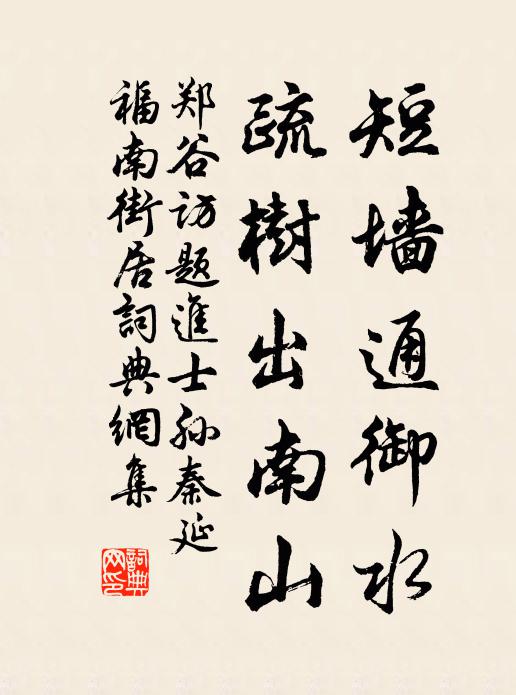 短墙通御水
疏樹出南山
郑谷访题進士孙秦延
福南街居詞典網集
詞典网印